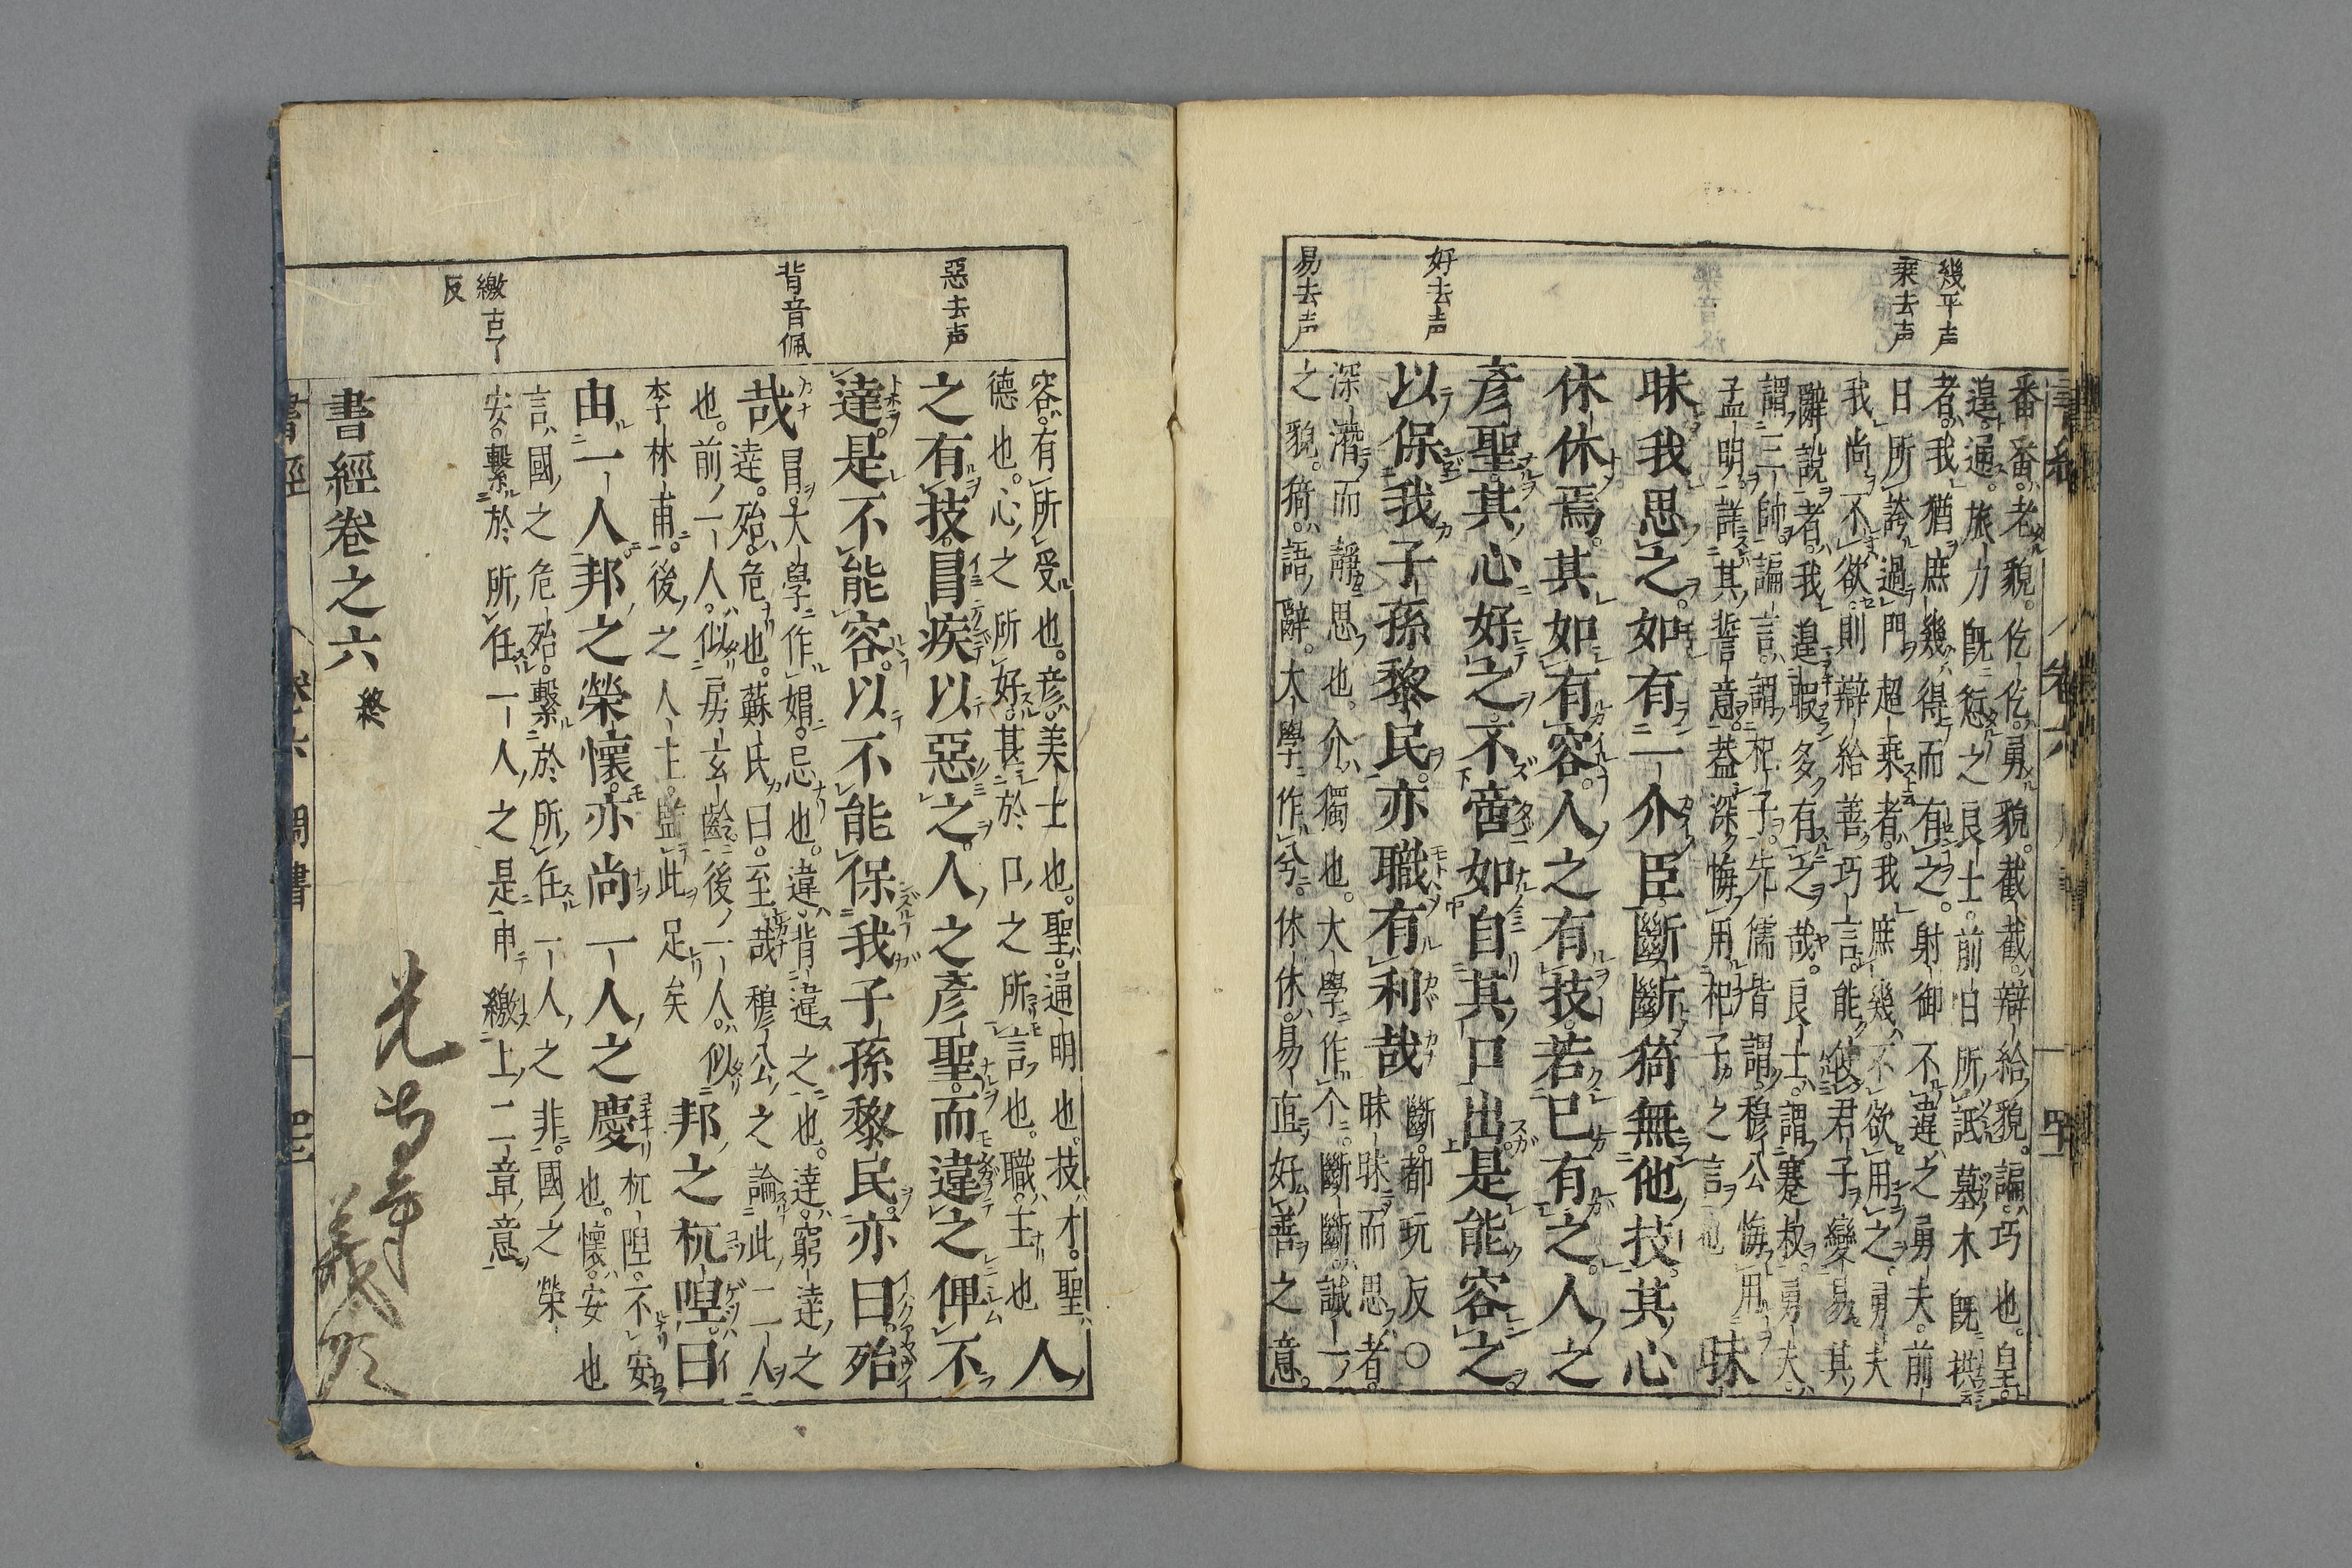 幾平声
乗去声
好去声
易去声
番番。老貌。仡仡。勇貌。截截。辯給貌。諞。巧也。皇。
遑通。旅力既愆之良士。前日所詆墓木既拱
者。我猶庶幾得而有之。射御不違之勇夫。前
日所誇過門超乗者。我庶幾不欲用之。勇夫
我尚不欲。則辯給善巧言。能使君子變易其
辭說者。我遑暇多有之哉。良士。謂蹇叔。勇夫。
謂三帥。諞言。謂杞子。先儒皆謂。穆公悔用
孟明。詳其誓意。蓋深悔用杞子之言也
昧
昧我思之。如有一介臣。斷斷猗無他技。其心
休休焉。其如有容。人之有技。若已有之。人之
彥聖。其心好之。不啻如自其口出。是能容之。
以保我子孫黎民。亦職有利哉
斷。都玩反〇
昧昧而思者。
深潛而靜思也。介。獨也。大學作个。斷斷。誠一
之貌。猗。語辭。大學作兮。休休。易直好善之意。
惡去声
背音佩
繳古了
反
容。有所受也。彥。美士也。聖。通明也。技。才。聖。
德也。心之所好。甚於口之所言也。職。主也
人
之有技。冒疾以惡之。人之彥聖。而違之俾不
達。是不能容。以不能保我子孫黎民。亦曰殆
哉
冒。大學作媢。忌也。違。背違之也。達。窮達之
達。殆。危也。蘇氏曰。至哉穆公之論此二人
也。前一人。似房玄齡。後一人。似
李林甫。後之人主。監此足矣
邦之杌隉。曰
由一人。邦之榮懷。亦尚一人之慶
杌隉。不安
也。懷。安也
言。國之危殆。繫於所任一人之非。國之榮
安。繫於所任一人之是。申繳上二章意
書經卷之六 終